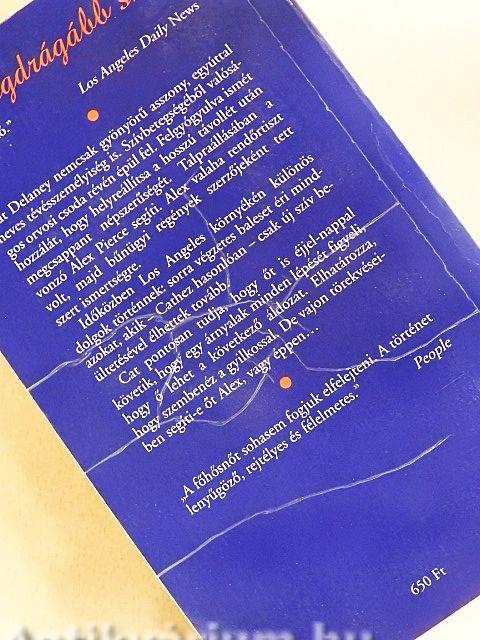 gdrágább s
ó."
Los Angeles Daily News
at Delaney nemcsak gyönyörű asszony, egyúttal
neves tévészemélyiség is. Szívbetegségéből valósá-
gos orvosi csoda révén épül fel. Felgyógyulva ismét
hozzálát, hogy helyreállítsa a hosszú távollét után
megcsappant népszerűségét. Talpraállásában a
vonzó Alex Pierce segíti. Alex valaha rendőrtiszt
volt, majd bűnügyi regények szerzőjeként tett
szert ismertségre.
Időközben Los Angeles környékén különös
dolgok történnek: sorra végzetes baleset éri mind-
azokat, akik – Cathez hasonlóan – csak új szív be-
ültetésével élhettek tovább.
Cat pontosan tudja, hogy őt is éjjel-nappal
követik, hogy egy árnyalak minden lépését figyeli,
hogy ő lehet a következő áldozat. Elhatározza,
hogy szembenéz a gyilkossal. De vajon törekvései-
ben segíti-e őt Alex, vagy éppen…
„A főhősnőt sohasem fogjuk elfelejteni. A történet
lenyűgöző, rejtélyes és félelmetes."
People
650 Ft